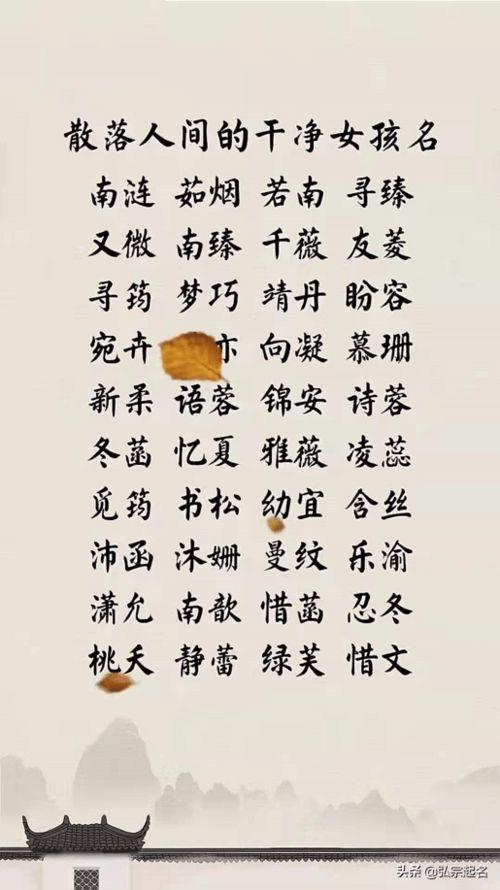 散落人间的干净女孩名
南涟 茹烟 若南 寻臻
又微 南臻 千薇 友菱
寻筠 梦巧 靖丹 盼容
宛卉 亦 向凝 慕珊
新柔 语蓉 锦安 诗蓉
冬菡 忆夏 雅薇 凌蕊
觅筠 书松 幼宜 含丝
沛函 沐姗 曼纹 乐渝
潇允 南歆 惜菡 忍冬
桃夭 静蕾 绿芙 惜文
头条 @弘宗起名